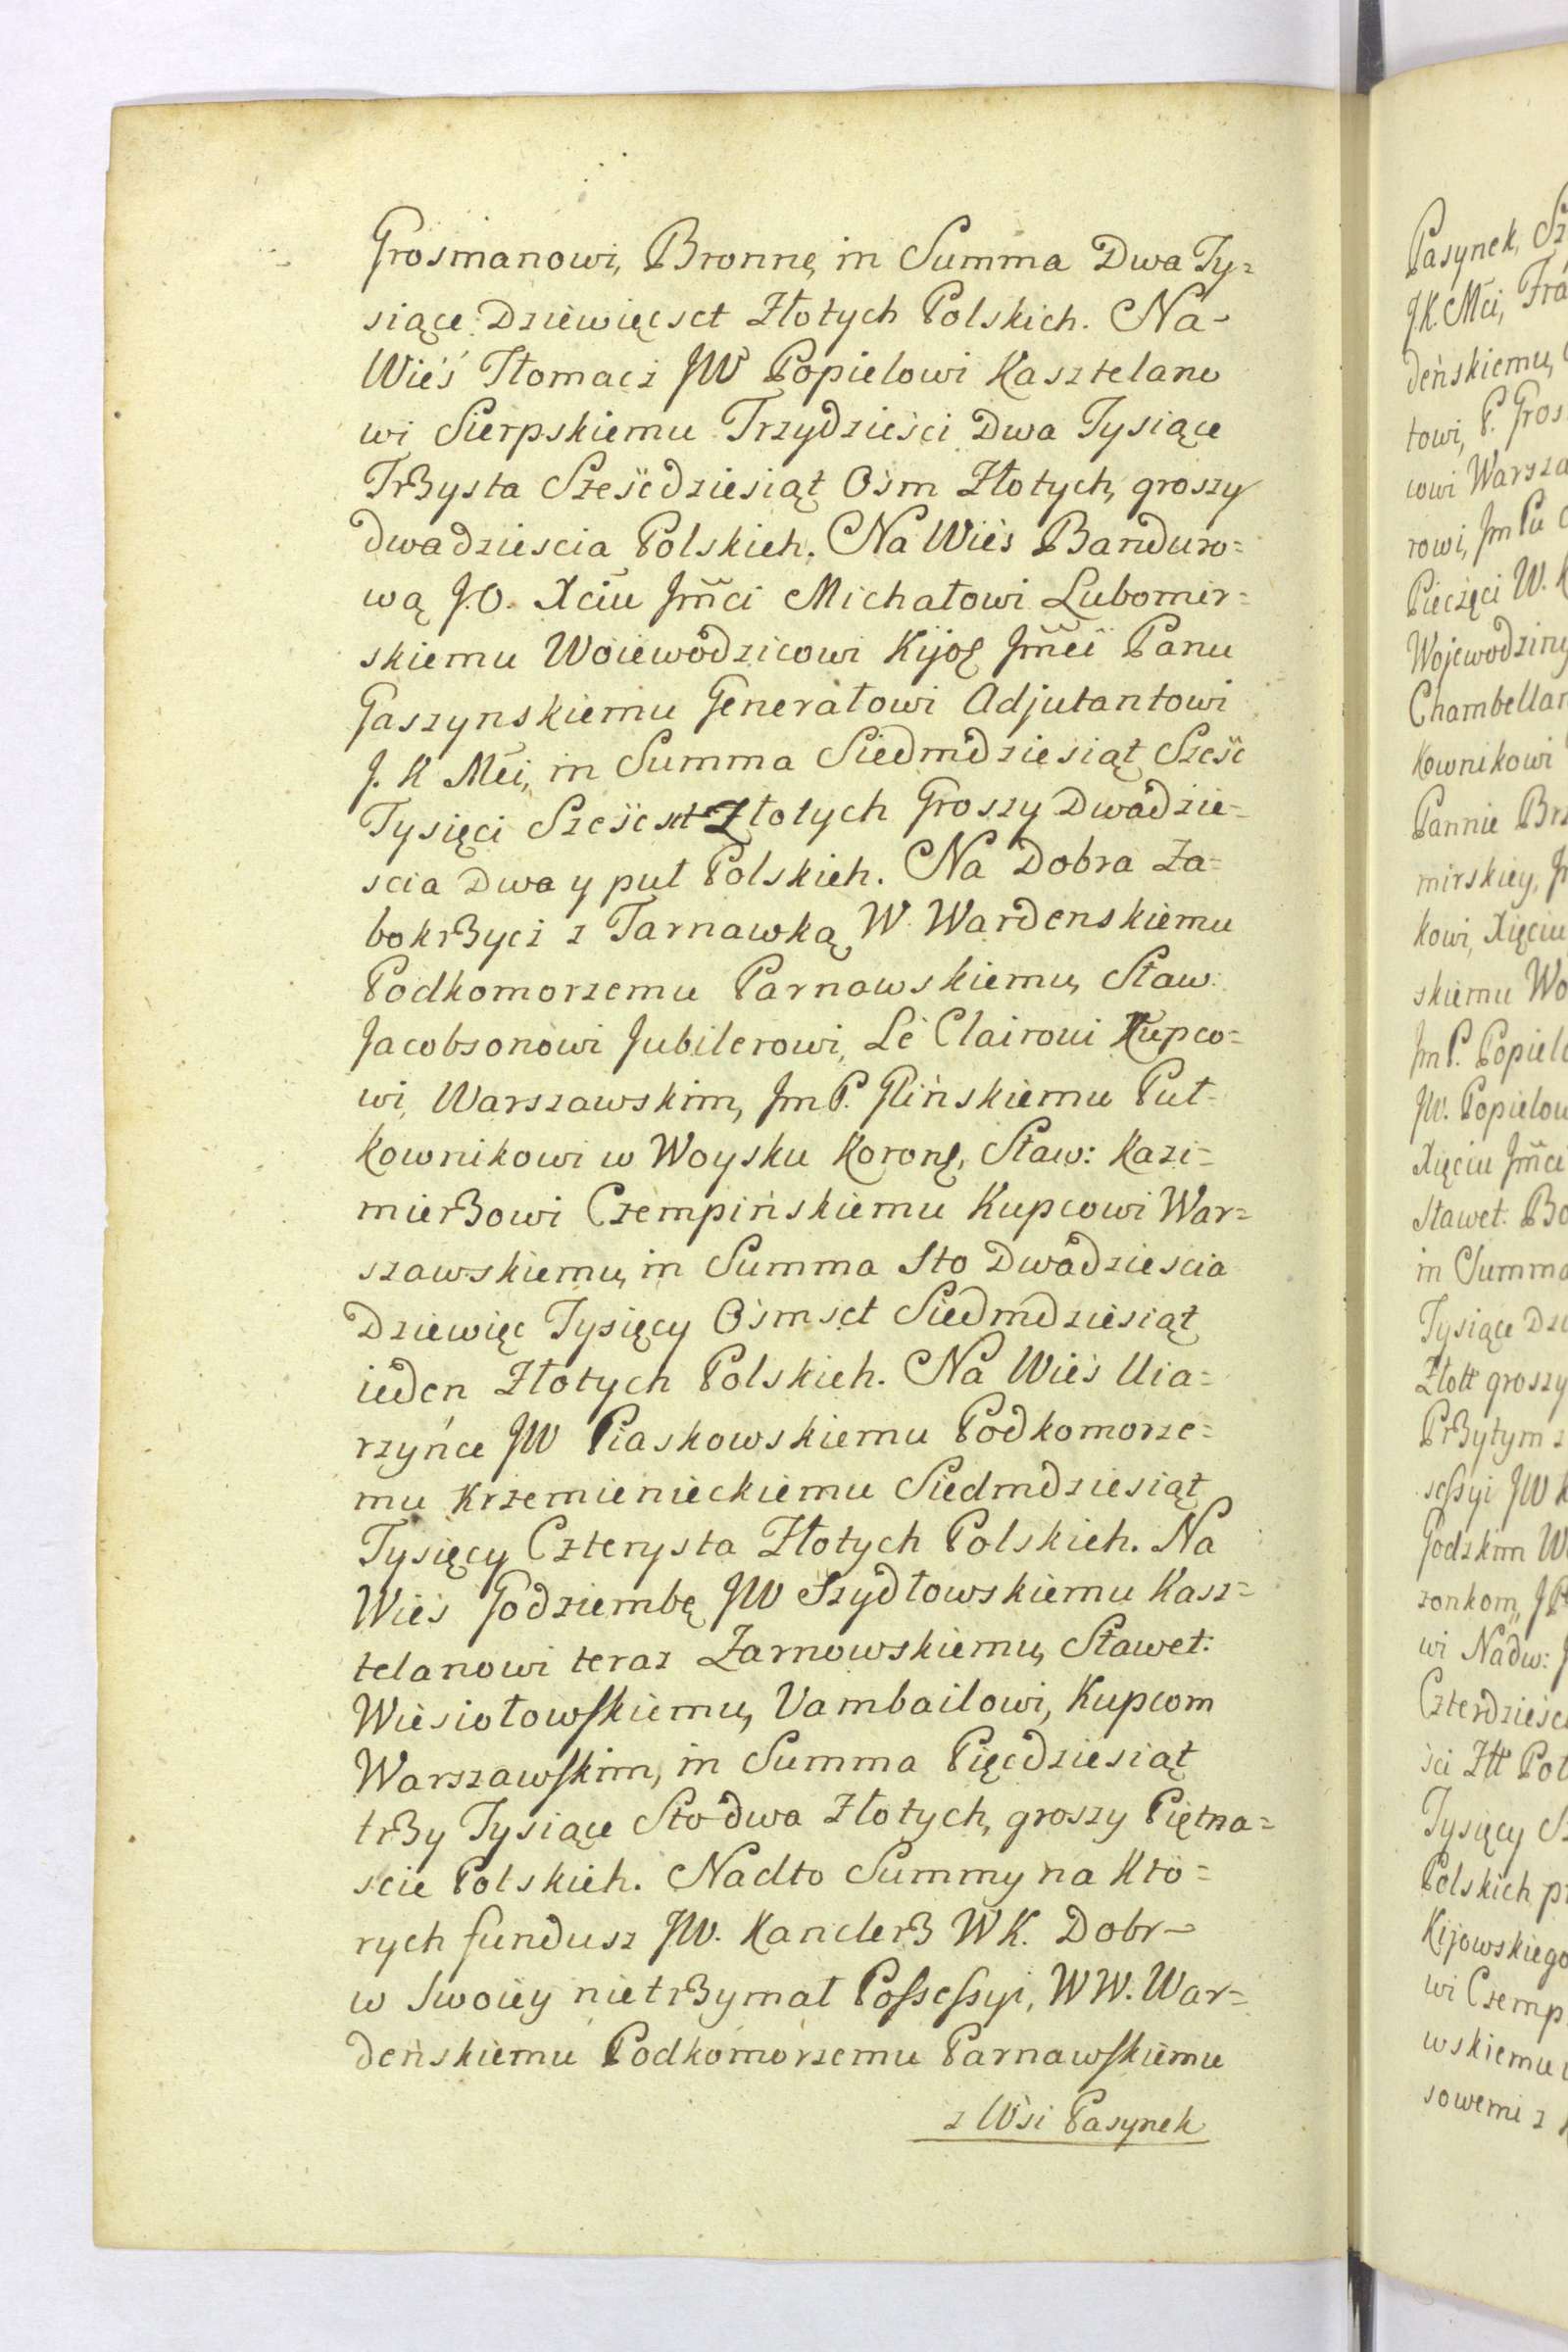 Grosmanowi, Bronnę in Summa Dwa Ty=
siące Dziewięcset Złotych Polskich. Na
Wieś Tłomacz JW Popielowi Kasztelano
wi Sierpskiemu Trzydzieści Dwa Tysiące
Trzysta Sześćdziesiąt Ośm Złotych, groszy
dwadziescia Polskich. Na Wieś Banduro=
wą J.O. Xciu Jmci Michałowi Lubomir=
skiemu Woiewodzicowi Kijo Jmci Panu
Gaszynskiemu Generałowi Adjutantowi
J. K Mci, in Summa Siedmdziesiąt Sześć
Tysięci Sześćset Złotych Groszy Dwadzie=
scia Dwa y puł Polskich. Na Dobra Za=
bokrzycz z Tarnawką W Wardenskiemu
Podkomorzemu Parnawskiemu, Sław.
Jacobsonowi Jubilerowi, Le Clairowi Kupco=
wi Warszawskim, Jm P. Glińskiemu Puł=
kownikowi w Woysku Koronę, Sław: Kazi=
mierzowi Czempińskiemu Kupcowi War=
szawskiemu, in Summa Sto Dwadziescia
Dziewięc Tysięcy Ośmset Siedmdziesiąt
ieden Złotych Polskich. Na Wieś Uia=
rzyńce JW Piaskowskiemu Podkomorze=
mu Krzemienieckiemu Siedmdziesiąt
Tysięcy Czterysta Złotych Polskich. Na
Wieś Godziembę JW Szydłowskiemu Kasz=
telanowi teraz Zarnowskiemu, Sławet:
Wiesiołowskiemu, Vambailowi, Kupcom
Warszawskim, in Summa Pięcdziesiąt
trzy Tysiące Sto dwa Złotych, groszy Piętna=
scie Polskich. Nadto Summy na Kto=
rych fundusz JW. Kanclerz WK. Dobr
w Swoiey nietrzymał Possessyi, WW. War=
deńskiemu Podkomorzemu Parnawskiemu
z Wsi Pasynek
Pasynek,
J.K. Mci,
deńskiemu,
towi, P. Gros
cowi Warsza
rowi, Jm Pu
Pieczęci W.
Wojewodziny
Chambellan
kownikowi
Pannie Brz
mirskiey,
kowi, Xięciu
skiemu Wo
Jm P. Popiel
JW. Popielow
Xięciu Jmci
Sławet. Bo
in Summa
Tysiące Dzi
Złott groszy
Przytym z
sessyi JW K
Godzkim W
zonkom,
wi Nadw:
Czterdziesc
ści Złt Pol
Tysięcy S
Polskich pr
Kijowskiego
wi Czemp
wskiemu
sowemi z